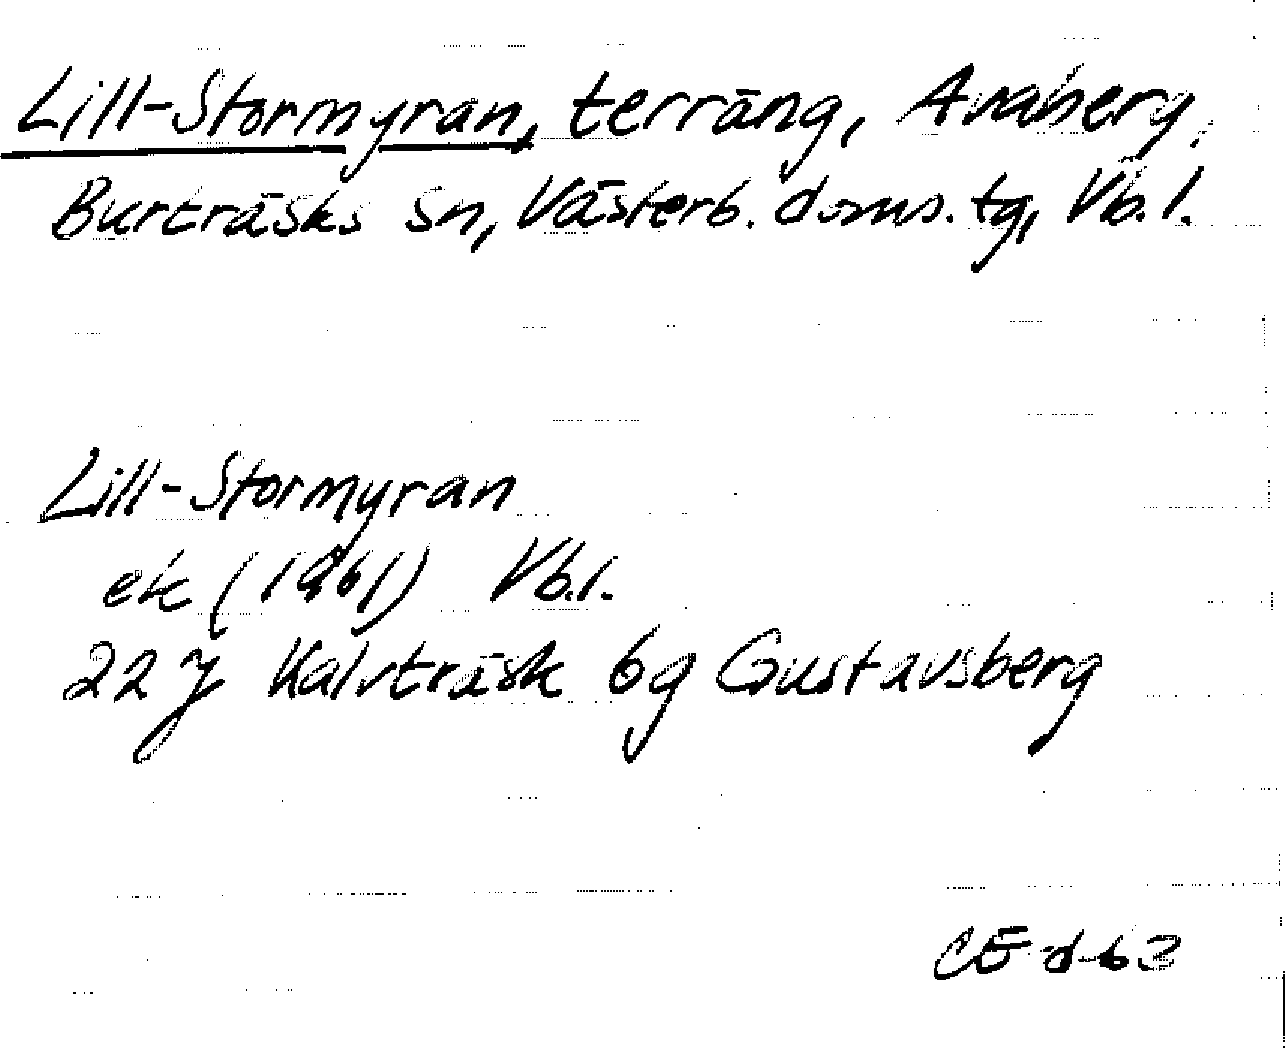 Lill-Stormyran, terräng, Avaberg,
Burträsks sn, Västerb. doms. tg, Vb. l.
Lill-Stormyran
ek (1961) Vb.l.
22 J Kalvträsk 6g Gustavsberg